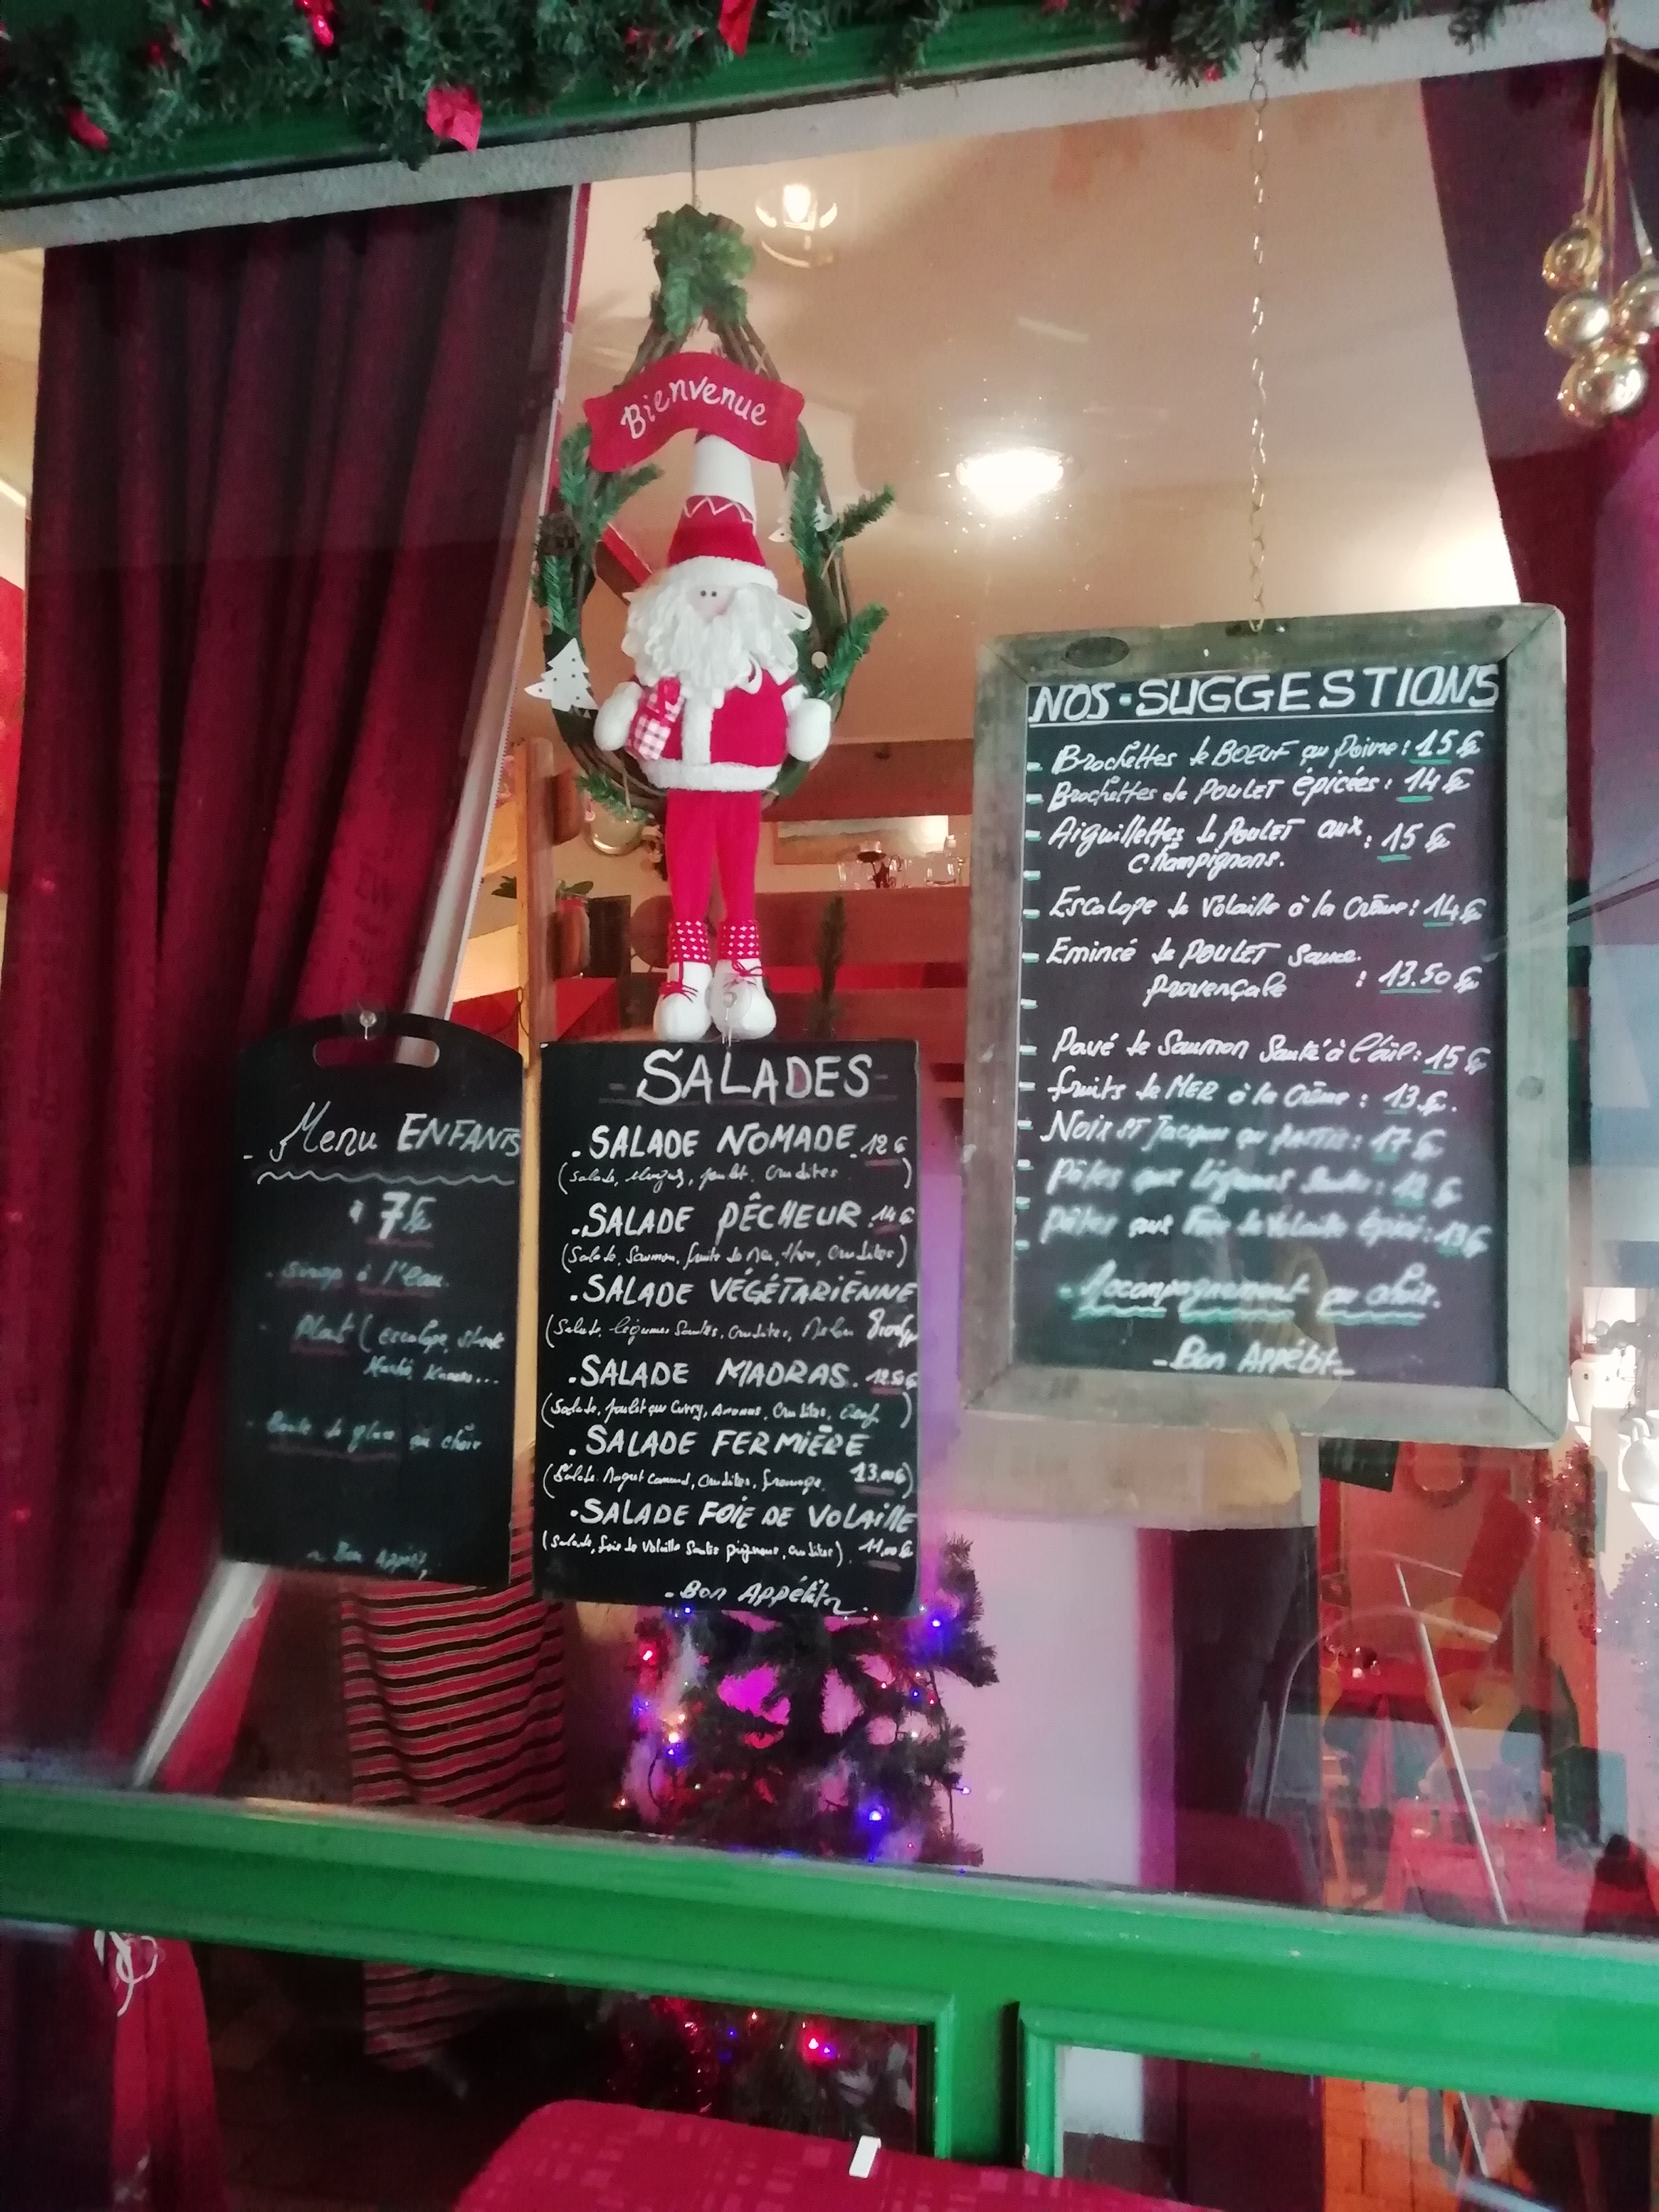 Bienvenue
- Menu ENFANTS
7€
- Sirop à l'eau.
- Plat (escalope, steak
- Boule de glace au choix
Bon Appétit
- SALADES -
. SALADE NOMADE. 12€
(Salade, poulet, Crudités )
. SALADE PÊCHEUR. 14€
(Salade, Saumon, fruits de Mer, thon, Crudités)
. SALADE VÉGÉTARIENNE
(Salade, légumes Sautés, Crudités, Melon
. SALADE MADRAS. 12.50€
(Salade, poulet au Curry, Ananas, Crudités, Oeuf )
. SALADE FERMIÈRE
(Salade, Magret Canard, Crudités, fromage. 13,00€)
. SALADE FOIE DE VOLAILLE
(Salade, foie de Volaille Sautés pignons, Crudités). 11,00€
- Bon Appétit -
NOS - SUGGESTIONS
- Brochettes de BOEUF au Poivre : 15€
- Brochettes de POULET épicées : 14€
- Aiguillettes de POULET aux : 15€
champignons.
- Escalope de Volaille à la Crème : 14€
- Emincé de POULET Sauce
provençale : 13.50€
- Pavé de Saumon Sauté à l'ail : 15€
- fruits de MER à la Crème : 13€.
- Noix ST Jacques au PASTIS : 17€
- Pâtes aux légumes Sautés : 12€
- Pâtes aux Foie de Volaille épicé : 13€
- Accompagnement au choix.
- Bon Appétit -